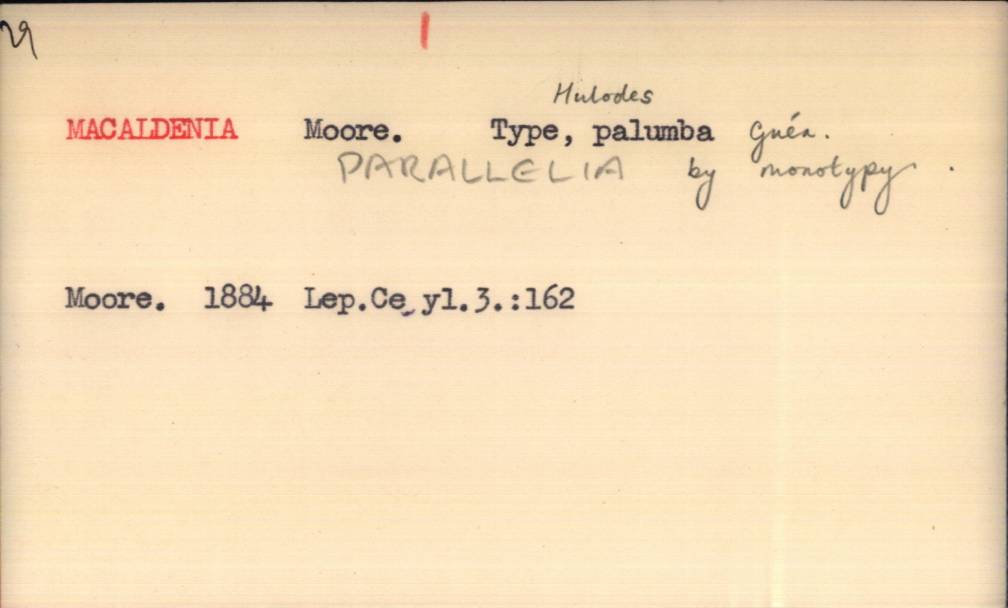 29
Hulodes
MACALDENIA Moore. Type, palumba Guén.
PARALLELIA by monotypy.
Moore. 1884 Lep.Ceyl.3.:162